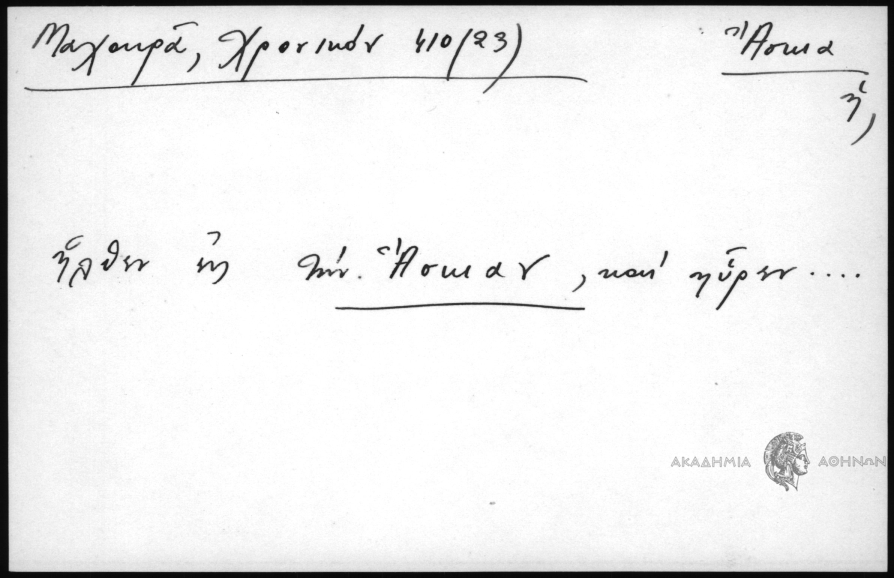 Μαχαιρᾶ, Χρονικόν 410/23)
Ἄσκια
ἡ,
ἦλθεν εἰς τὴν Ἄσκιαν, καὶ ηὗρεν ....
ΑΚΑΔΗΜΙΑ ΑΘΗΝΩΝ